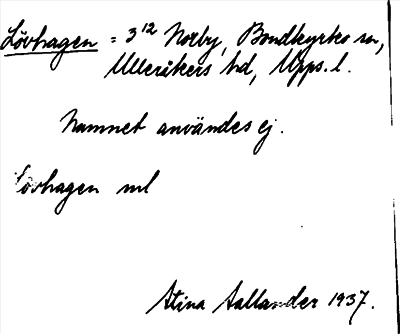 Lövhagen = 3¹² Norby, Bondkyrko sn,
Ulleråkers hd, Upps. l.
Namnet användes ej.
Lövhagen ml
Stina Sallander 1937.